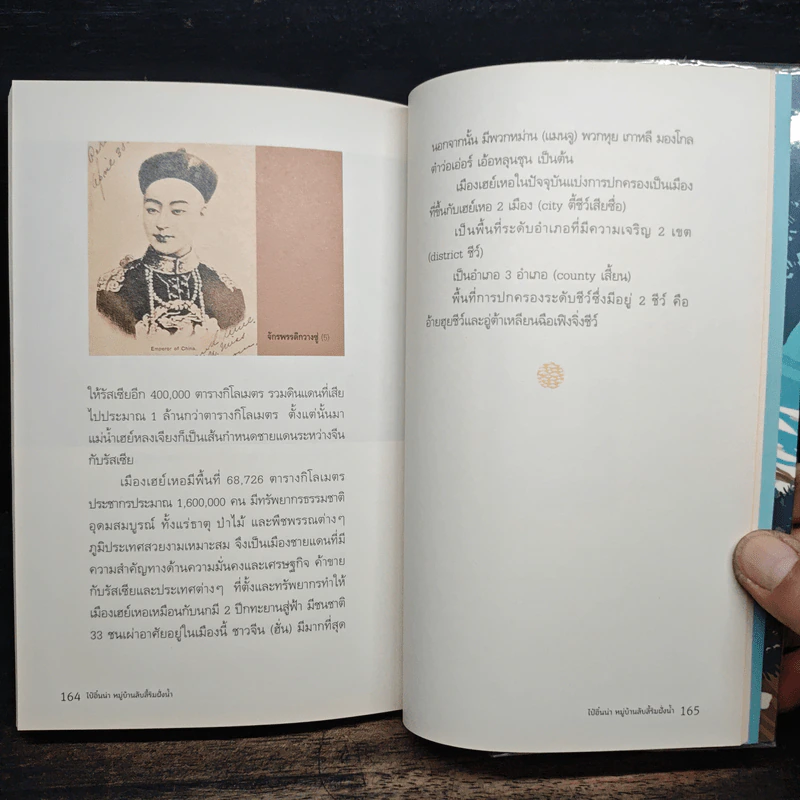 April 30
จักรพรรดิกวางซู่ (1)
Emperor of China.
ให้รัสเซียอีก 400,000 ตารางกิโลเมตร รวมดินแดนที่เสีย
ไปประมาณ 1 ล้านกว่าตารางกิโลเมตร ตั้งแต่นั้นมา
แม่น้ำเฮย์หลงเจียงก็เป็นเส้นกำหนดชายแดนระหว่างจีน
กับรัสเซีย
เมืองเฮย์เหอมีพื้นที่ 68,726 ตารางกิโลเมตร
ประชากรประมาณ 1,600,000 คน มีทรัพยากรธรรมชาติ
อุดมสมบูรณ์ ทั้งแร่ธาตุ ป่าไม้ และพืชพรรณต่างๆ
ภูมิประเทศสวยงามเหมาะสม จึงเป็นเมืองชายแดนที่มี
ความสำคัญทางด้านความมั่นคงและเศรษฐกิจ ค้าขาย
กับรัสเซียและประเทศต่างๆ ที่ตั้งและทรัพยากรทำให้
เมืองเฮย์เหอเหมือนกับนกมี 2 ปีกทะยานสู่ฟ้า มีชนชาติ
33 ชนเผ่าอาศัยอยู่ในเมืองนี้ ชาวจีน (ฮั่น) มีมากที่สุด
164 ไป๋อิ๋นน่า หมู่บ้านลับลี้ริมฝั่งน้ำ
นอกจากนั้น มีพวกหม่าน (แมนจู) พวกหุย เกาหลี มองโกล
ต๋าว่อเอ่อร์ เอ้อหลุนชุน เป็นต้น
เมืองเฮย์เหอในปัจจุบันแบ่งการปกครองเป็นเมือง
ที่ขึ้นกับเฮย์เหอ 2 เมือง (city ตี้ซื่อเสียซื่อ)
เป็นพื้นที่ระดับอำเภอที่มีความเจริญ 2 เขต
(district ชีว์)
เป็นอำเภอ 3 อำเภอ (county เสี้ยน)
พื้นที่การปกครองระดับชีว์ซึ่งมีอยู่ 2 ชีว์ คือ
อ้ายฮุยชีว์และอู่ต้าเหลียนฉือเฟิงจิ่งชีว์
ไป๋อิ๋นน่า หมู่บ้านลับลี้ริมฝั่งน้ำ 165